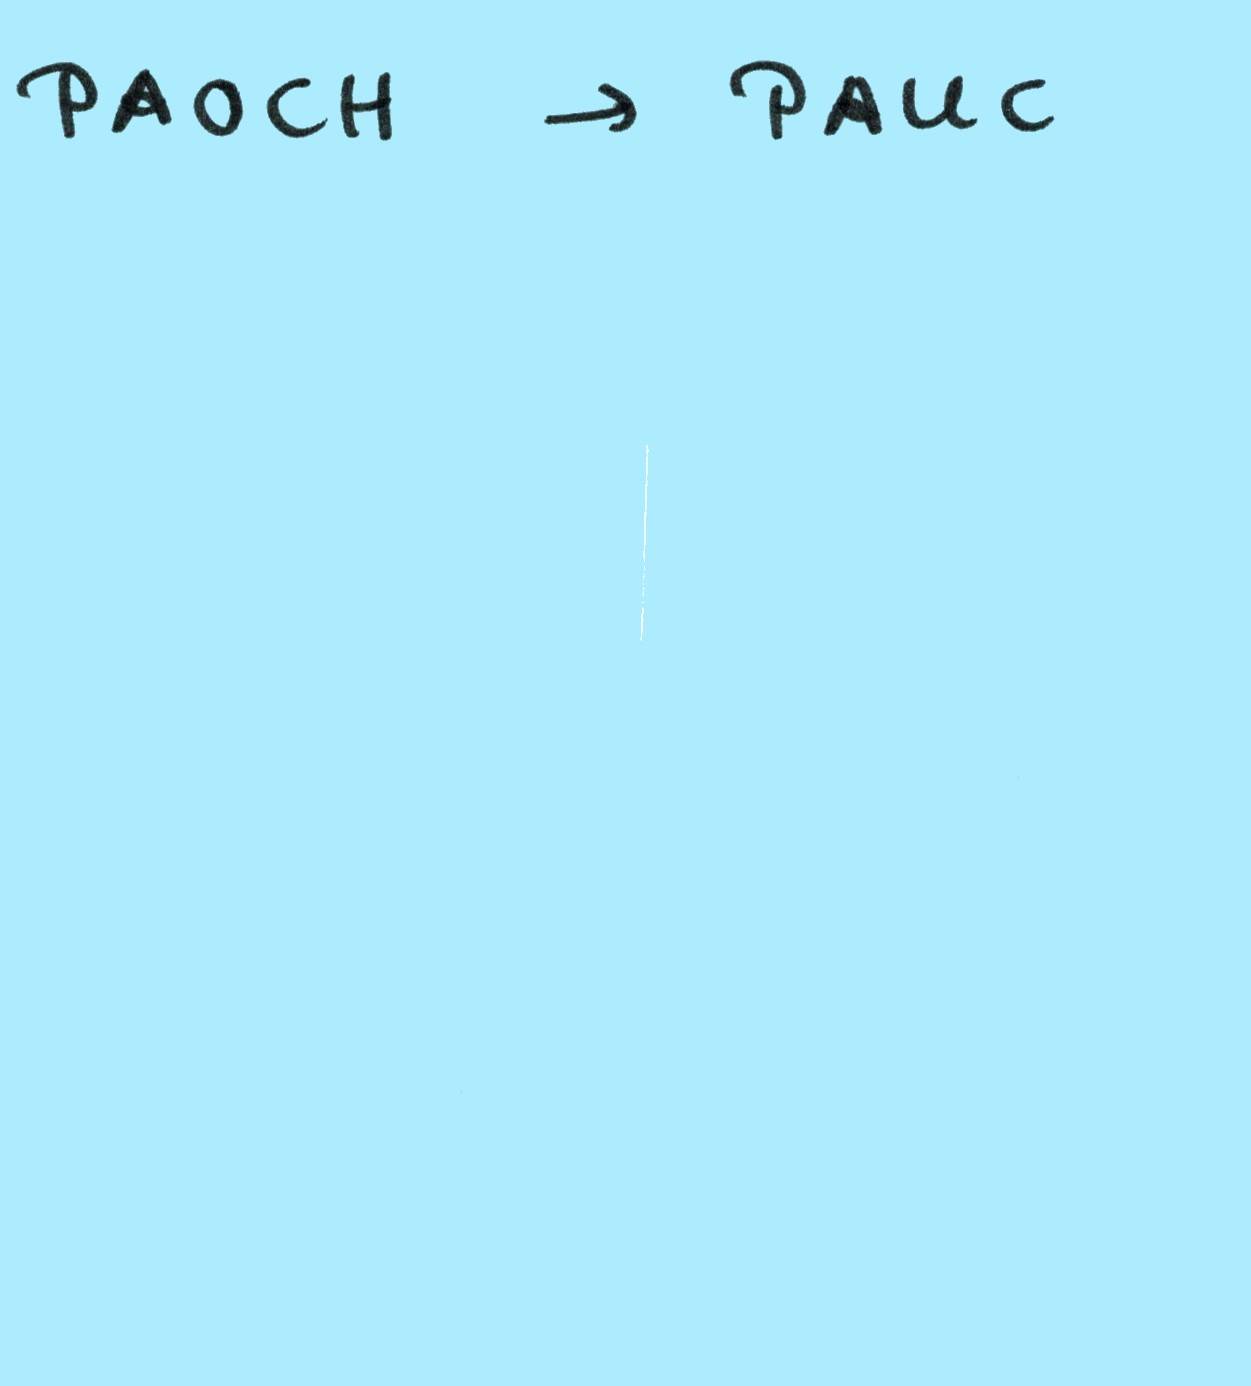 PAOCH → PAUC